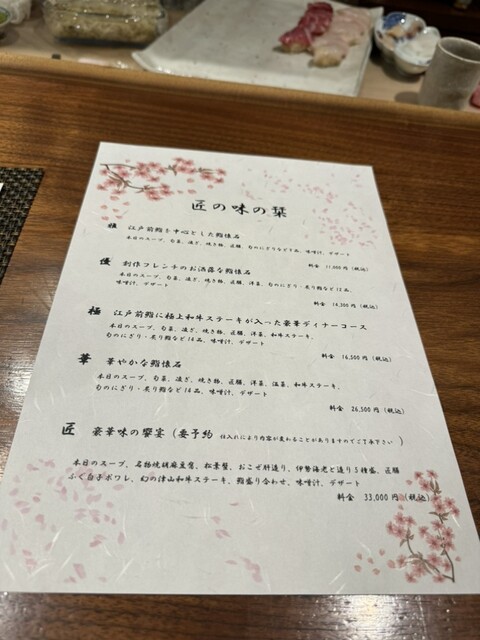 匠の味の栞
雅 江戸前鮨を中心とした鮨懐石
本日のスープ、旬菜、造ぎ、焼き物、匠膳、旬のにぎりなど9品、味噌汁、デザート
料金 11,000円(税込)
優 創作フレンチのお洒落な鮨懐石
本日のスープ、旬菜、造ぎ、焼き物、匠膳、洋菜、旬のにぎり・炙り鮨など12品、
味噌汁、デザート
料金 14,300円(税込)
極 江戸前鮨に極上和牛ステーキが入った豪華ディナーコース
本日のスープ、旬菜、造ぎ、焼き物、匠膳、洋菜、和牛ステーキ、
旬のにぎり・炙り鮨など14品、味噌汁、デザート
料金 16,500円(税込)
華 華やかな鮨懐石
本日のスープ、旬菜、造ぎ、焼き物、匠膳、洋菜、温菜、和牛ステーキ、
旬のにぎり・炙り鮨など14品、味噌汁、デザート
料金 26,500円(税込)
匠 豪華味の饗宴(要予約 仕入れにより内容が変わることがありますのでご了承下さい)
本日のスープ、名物焼胡麻豆腐、松葉蟹、おこぜ肝造り、伊勢海老と造り5種盛、匠膳
ふく白子ポワレ、幻の津山和牛ステーキ、鮨盛り合わせ、味噌汁、デザート
料金 33,000円(税込)